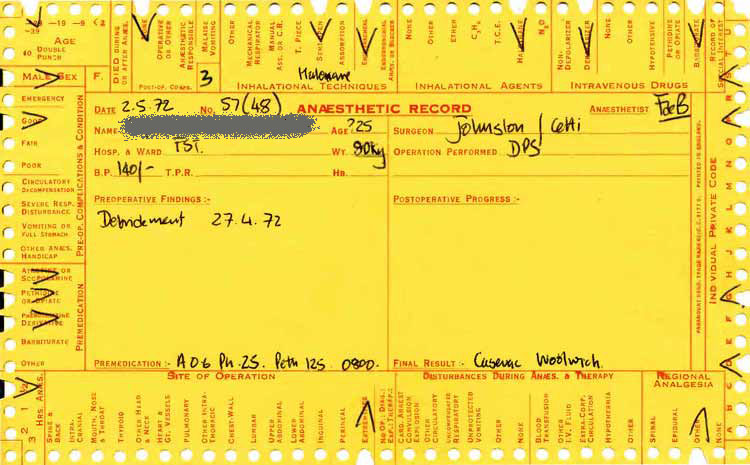 -39 -19 -9 <2
AGE
40 DOUBLE PUNCH
DIED DURING OR AFTER ANÆS.
NONE
OPERATIVE OR OTHER
ANÆSTHETIC RESPONSIBLE
MALAISE VOMITING
OTHER
MECHANICAL RESPIRATOR
MANUAL ASS. OR C.R.
T. PIECE
ABSORPTION
NONE
OTHER
ETHER
C₃H₆
T.C.E.
HALOTHANE
N₂O
NON-DEPOLARIZER
DEPOLARIZER
NONE
OTHER
HYPOTENSIVE
PETHIDINE OR OPIATE
BARBITURATE
RECORD OF SPECIAL INTEREST
MALE SEX F. POST-OP. COMPS. 3 INHALATIONAL TECHNIQUES INHALATIONAL AGENTS INTRAVENOUS DRUGS
Halothane
EMERGENCY
GOOD
FAIR
POOR
CIRCULATORY DECOMPENSATION
SEVERE RESP. DISTURBANCE
VOMITING OR FULL STOMACH
OTHER ANÆS. HANDICAP
PRE-OP. COMPLICATIONS & CONDITION
ATROPINE OR SCOPOLAMINE
PETHIDINE OR OPIATE
PHENOTHIAZINE DERIVATIVE
BARBITURATE
OTHER
PREMEDICATION
DATE 2.5.72 No. 57(48) ANÆSTHETIC RECORD ANÆSTHETIST
NAME AGE ?25 SURGEON Johnston / Cetti
HOSP. & WARD TST. WT. 90kg OPERATION PERFORMED DPS
B.P. 140/- T.P.R. HB.
PREOPERATIVE FINDINGS :- POSTOPERATIVE PROGRESS :-
Debridement 27.4.72
PREMEDICATION :- A 0.6 Ph. 25. Peth 125 0800. FINAL RESULT :- Casevac Woolwich.
PRINTED IN ENGLAND.
INDIVIDUAL PRIVATE CODE
SITE OF OPERATION DISTURBANCES DURING ANÆS. & THERAPY REGIONAL ANALGESIA
3 2 1 ½
HRS. ANÆS.
SPINE & BACK
INTRA-CRANIAL
MOUTH, NOSE & THROAT
THYROID
OTHER HEAD & NECK
HEART & GT. VESSELS
PULMONARY
OTHER INTRA-THORACIC
CHEST-WALL
LUMBAR
UPPER ABDOMINAL
LOWER ABDOMINAL
INGUINAL
PERINEAL
EXTREMITIES
NO OP., DIAG.: EXP.: THERAP.:
CARD. ARREST CONVULSION EXPLOSION
OTHER CIRCULATORY
UNCORRECTED RESPIRATORY
UNPROTECTED VOMITING
OTHER
NONE
BLOOD TRANSFUSION
OTHER I.V. FLUID
EXTRA-CORP. CIRCULATION
HYPOTHERMIA
OTHER
SPINAL
EPIDURAL
OTHER
NONE